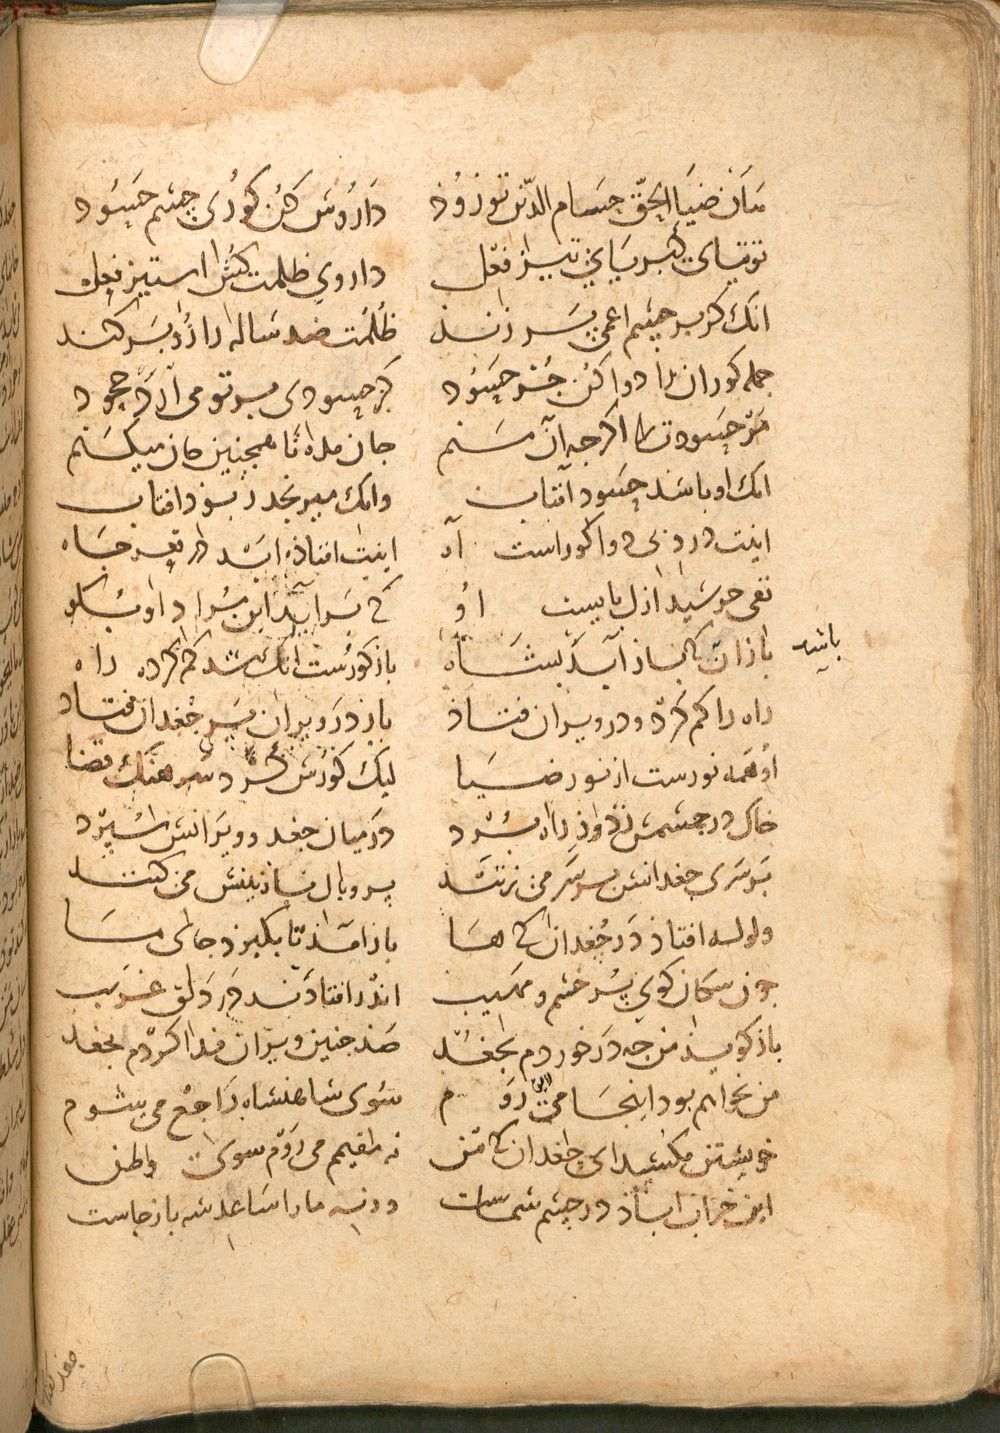 سَاَن ضیَا الحقّ حسَام الدّین تو زُوْد دَارُوَش کُن کورُی چشم حَسُود
توتیَای کبریَایئ تیز فعل داروی ظلمت کُش استیز فعل
انک کر بر چشم اعمی بَر زند ظُلمَت صد ساله را زُو بَر کند
جمله کوران را دوا کُن جُز حَسُود کز حسودی بر تو می آرَد جحود
مر حَسُودت را اکرچه آن مَنم جان مده تا همچنین جان میکَنم
انک او باشد حَسُود آفتاب وانک میرنجد ز بود افتاب
اینت درد بی دوا کوراست آه اینت افتاذه ابَد در قعر چَاه
نفی خورشید ازل بایست اوُ کی بَرایَد این مُراد او بکو
باز ان باشد که باز آیَد بشَاه باز کورَست انک شد کم کرده راه
راه را کم کرد و در ویران فتاذ باز در ویران بَر جُغدان فتاد
اوُ همَه نورست از نور ضیَا لیک کورَش کرد سرهنک قضا
خاک در چشمش زد و از راه بُرْد در میان جغد و ویرانش سُپرْد
بَر سَری جغدانش بر سَر می زنند پر و بال نازنینش می کنند
ولوله افتاذ در جُغدان که هَا باز آمَذ تا بکیرد جای مَا
چون سکان کوی پُر خشم و مهیب اندر افتاذَند در دَلق غریب
باز کویذ من چه دَر خوردم بجغد صَد چنین ویران فدا کردم بجغد
من نخواهم بود اینجَا می رَوَم سُوی شاهنشاه رَاجع می شوم
خویشتن مکشید ای جغدان که من نه مقیمم می رَوَم سوی وطن
این خراب اباذ در چشم شماست ورنه ما را ساعد شه باز جاست
جغد کفتا